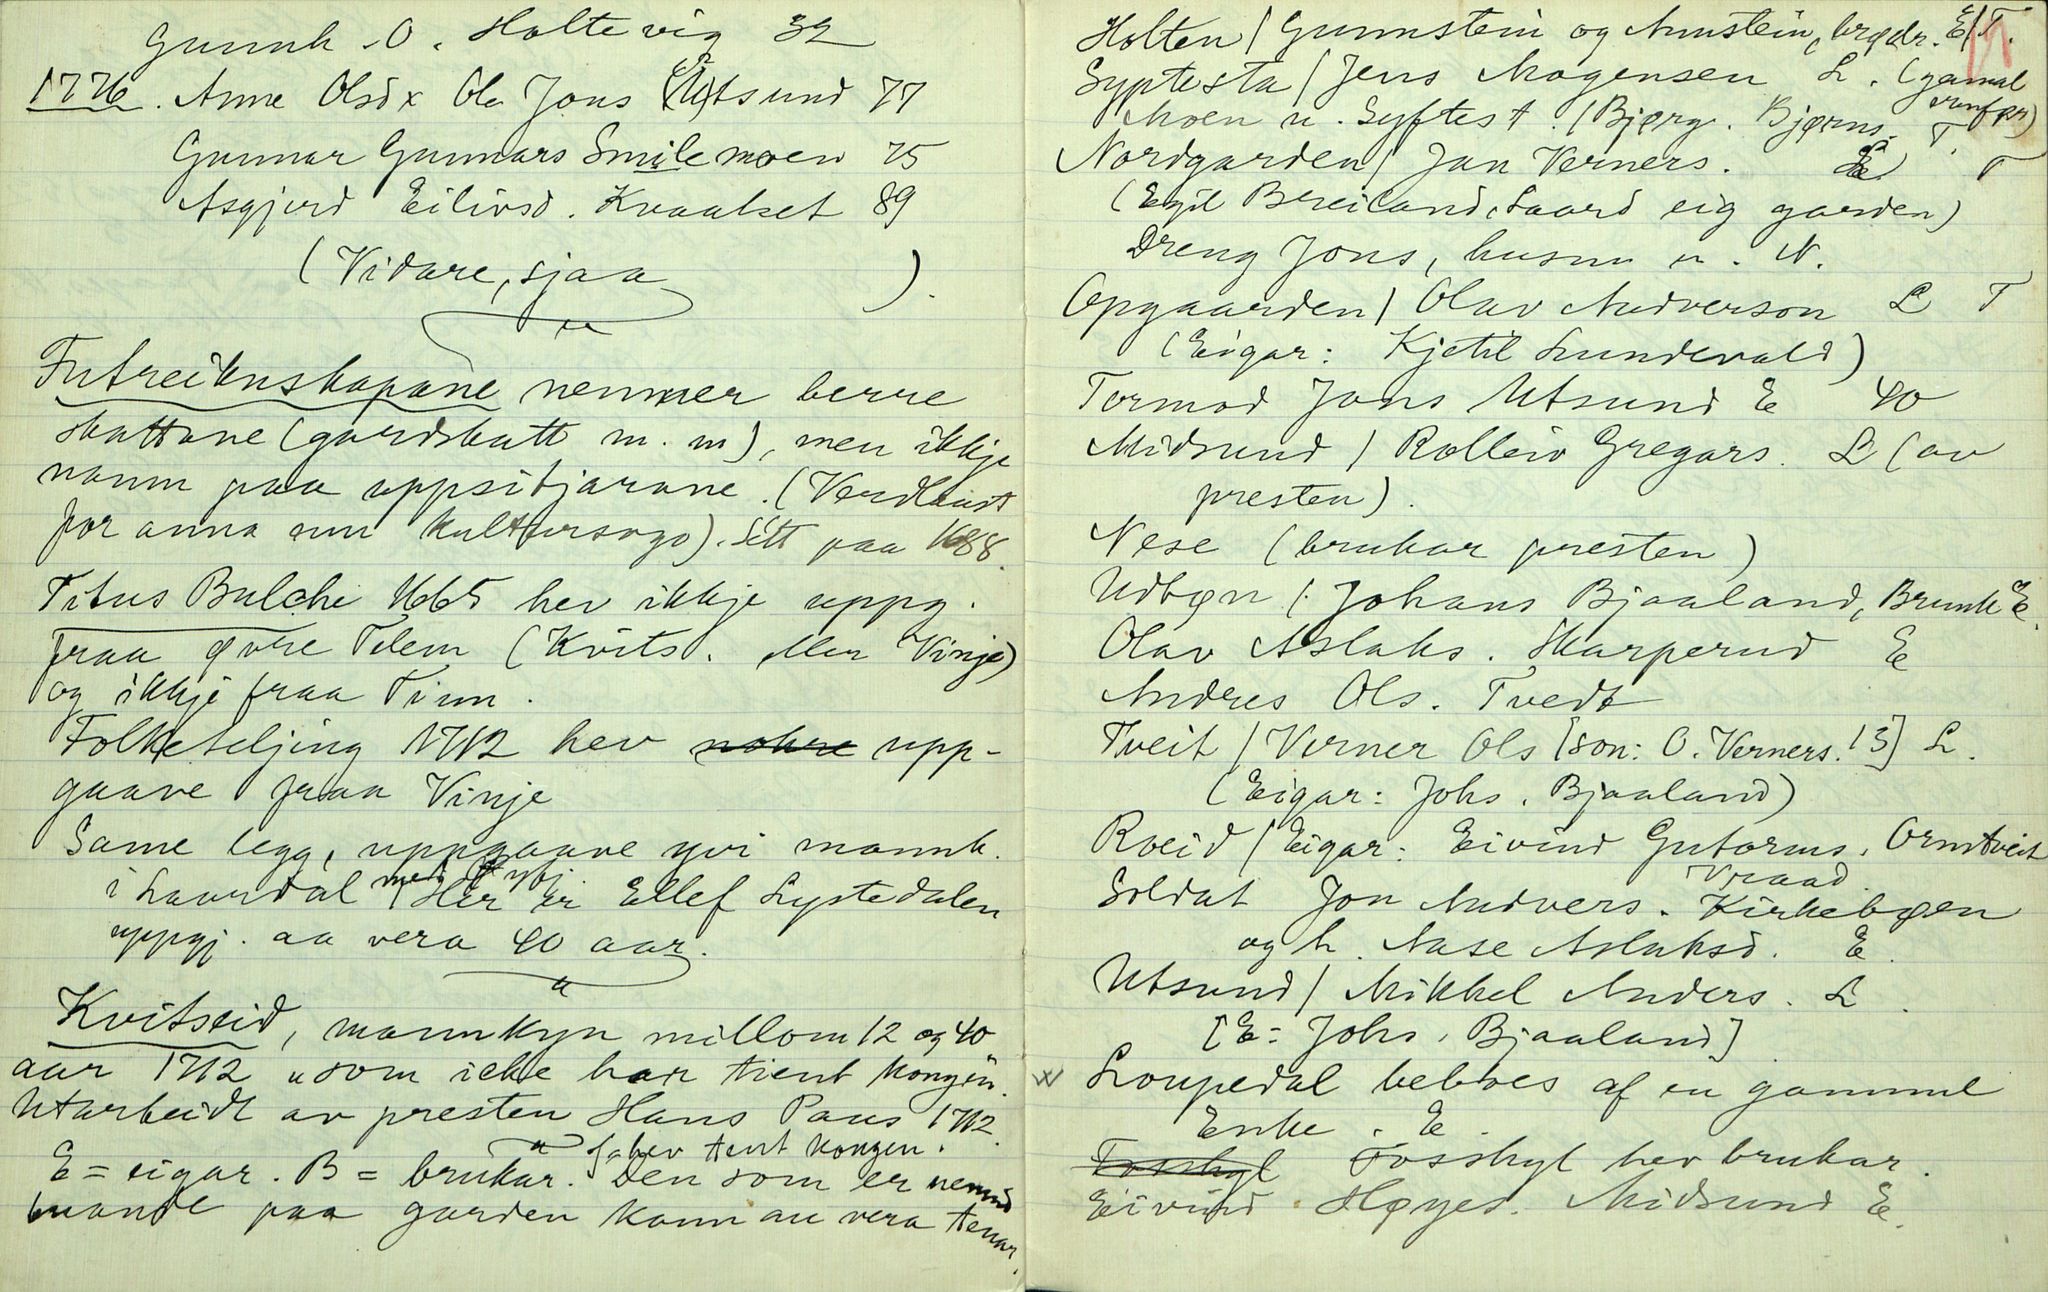 Gunnh. O. Holtevig 32
1776. Anne Olsd x Ola Jons Utsund 77
Gunnar Gunnars Smilemoen 75
Asgjerd Eilivsd. Kvaalset 89
(Vidare, sjaa ).
Futreiknskapane nemner berre
skattane (gardskatt m.m), men ikkje
namn paa uppsitjarane. (Verdlaust
for anna enn kultursogo). Sett paa 1688.
Titus Bulche 1665 hev ikkje uppg.
fraa øvre Telem (Kvits. eller Vinje)
og ikkje fraa Tinn.
Folketeljing 1712 hev nokre upp-
gaave fraa Vinje
Same legg, uppgaave yvi mannk.
i Laurdal. Her er Ellef Lystedalen
uppgj. aa vera 40 aar.
Kvitseid, mannkyn millom 12 og 40
aar 1712 "som icke har tient kongen.
Utarbeidt av presten Hans Paus 1712.
hev tent kongen.
E = eigar. B = brukar. Den som er nemnd
buande paa garden kann au vera tenar.
Holten / Gunnstein og Aunstein, brødr. E/T.
Syptesta / Jens Mogensen L. (gamal
Moen u. Syftest. (Bjørg. Bjørns. T.
Nordgarden / Jan Verners. E T
(Egil Breiland, Laard eig garden)
Dreng Jons, husm u. N.
Opgaarden / Olav Audverson L T
(Eigar: Kjetil Lundevald)
Tormod Jons Utsund E 40
Midsund / Rolleiv Gregars. L (av
presten).
Nese (brukar presten)
Udbøn /: Johans Bjaaland, Brunk. E.
Olav Aslaks. Skarperud E
Andres Ols. Tvedt
Tveit / Verner Ols [son: O. Verners. 13] L.
(Eigar: Johs. Bjaaland)
Roeid / Eigar: Eivind Gutorms. Ormtveit
Vraad.
Soldat Jon Audvers. Kirkebøen
og h. Aase Aslaksd. E.
Utsund / Mikkel Anders. L.
[E: Johs. Bjaaland]
Loupedal beboes af en gammel
Enke. E.
Fosskyl Fosskyl hev brukar.
Eivind Høyes. Midsund E.